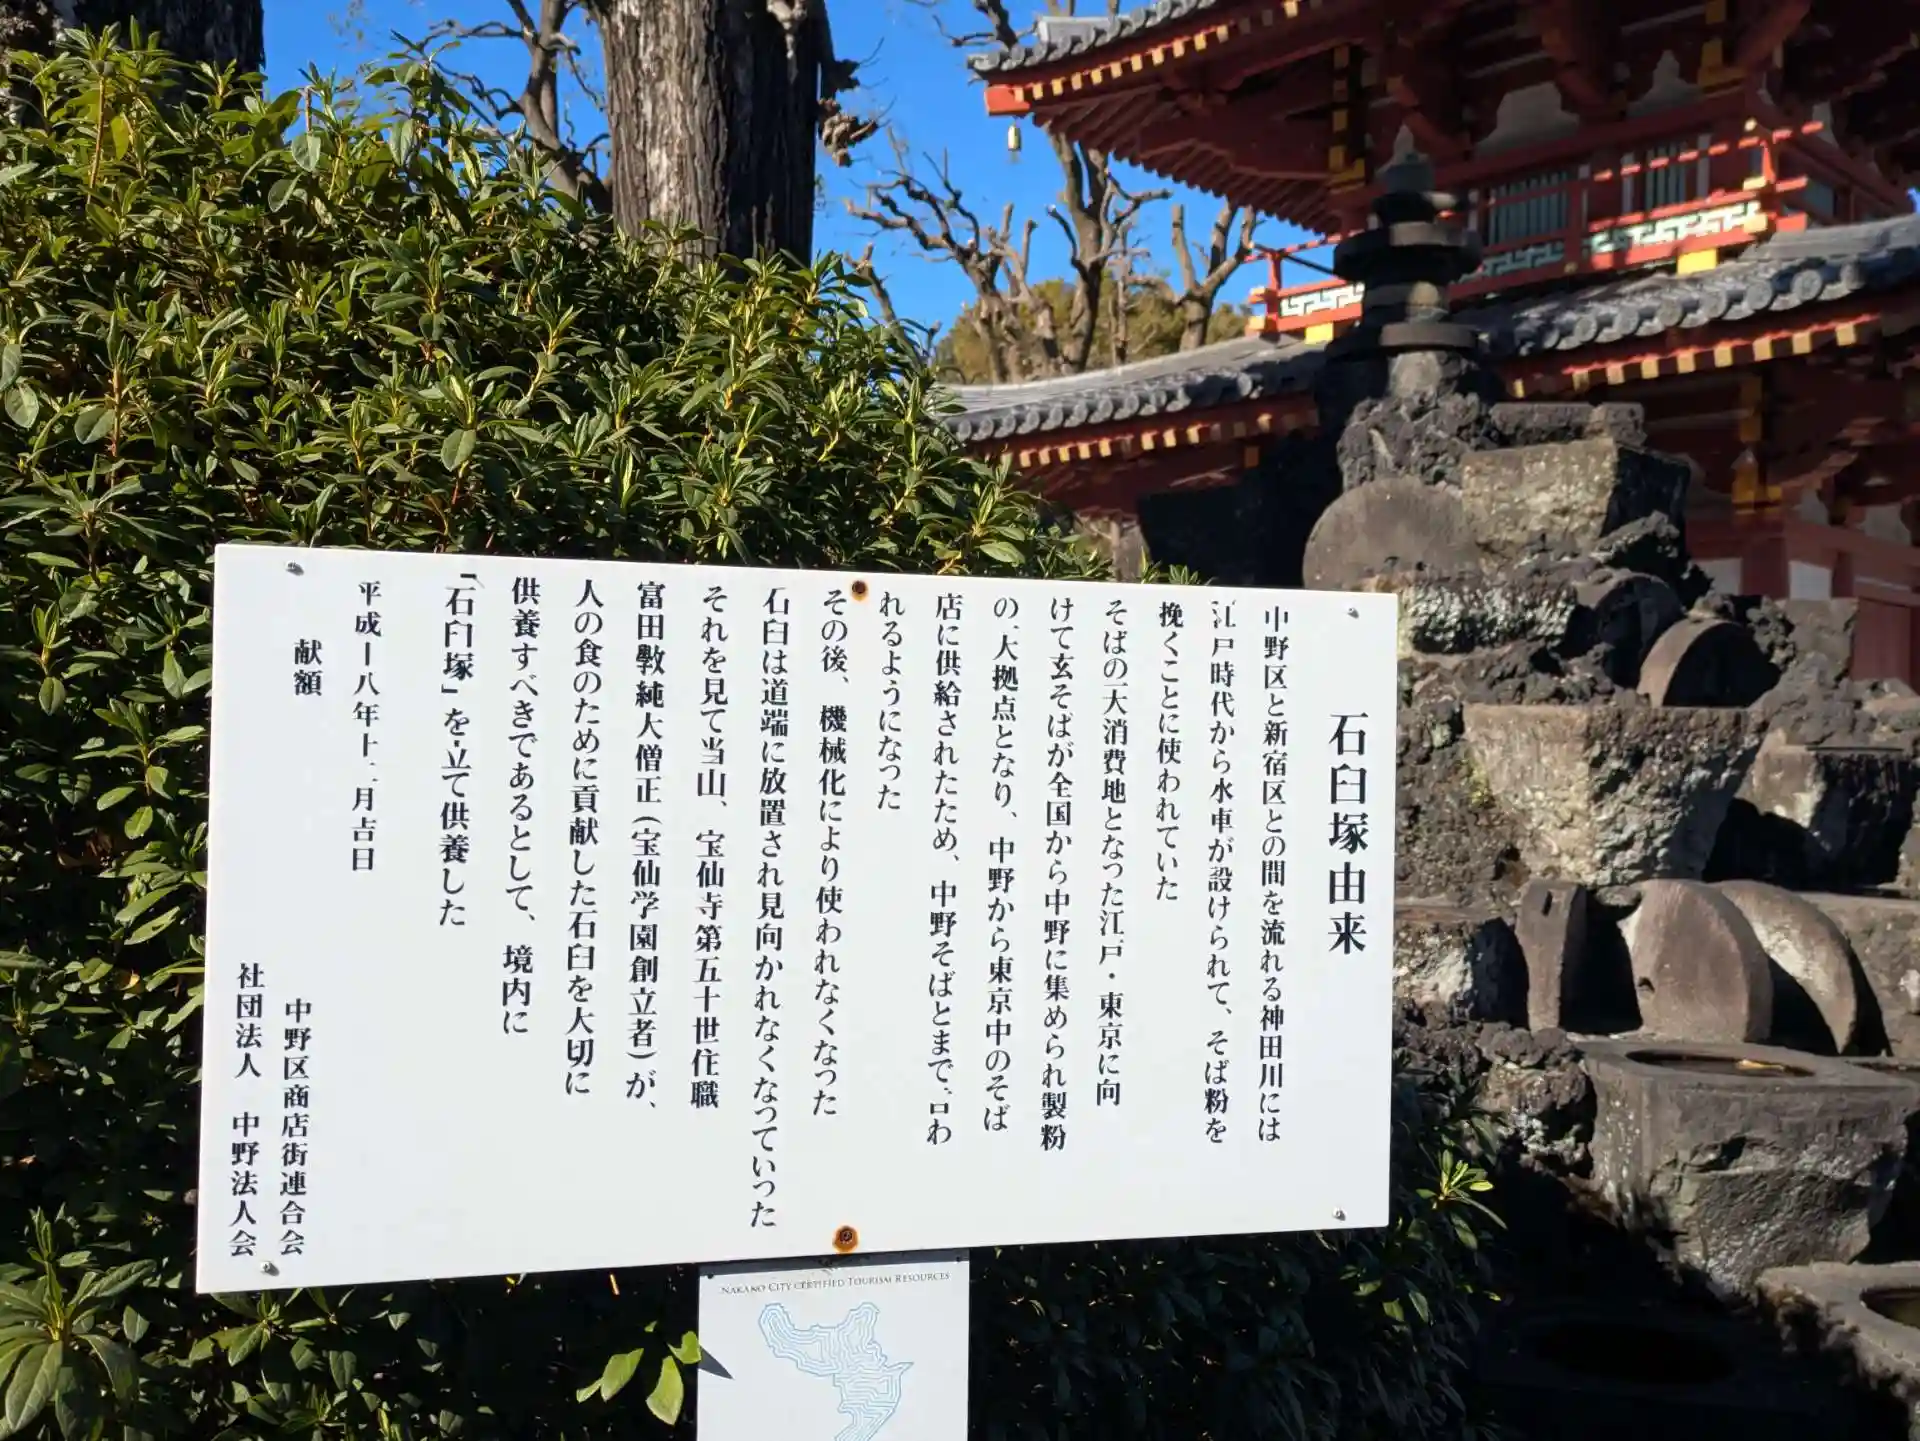 石臼塚由来
中野区と新宿区との間を流れる神田川には
江戸時代から水車が設けられて、そば粉を
挽くことに使われていた
そばの一大消費地となった江戸・東京に向
けて玄そばが全国から中野に集められ製粉
の一大拠点となり、中野から東京中のそば
店に供給されたため、中野そばとまで言わ
れるようになった
その後、機械化により使われなくなった
石臼は道端に放置され見向かれなくなっていった
それを見て当山、宝仙寺第五十世住職
富田斅純大僧正(宝仙学園創立者)が、
人の食のために貢献した石臼を大切に
供養すべきであるとして、境内に
「石臼塚」を立て供養した
平成一八年十二月吉日
献額
中野区商店街連合会
社団法人 中野法人会
NAKANO CITY CERTIFIED TOURISM RESOURCES